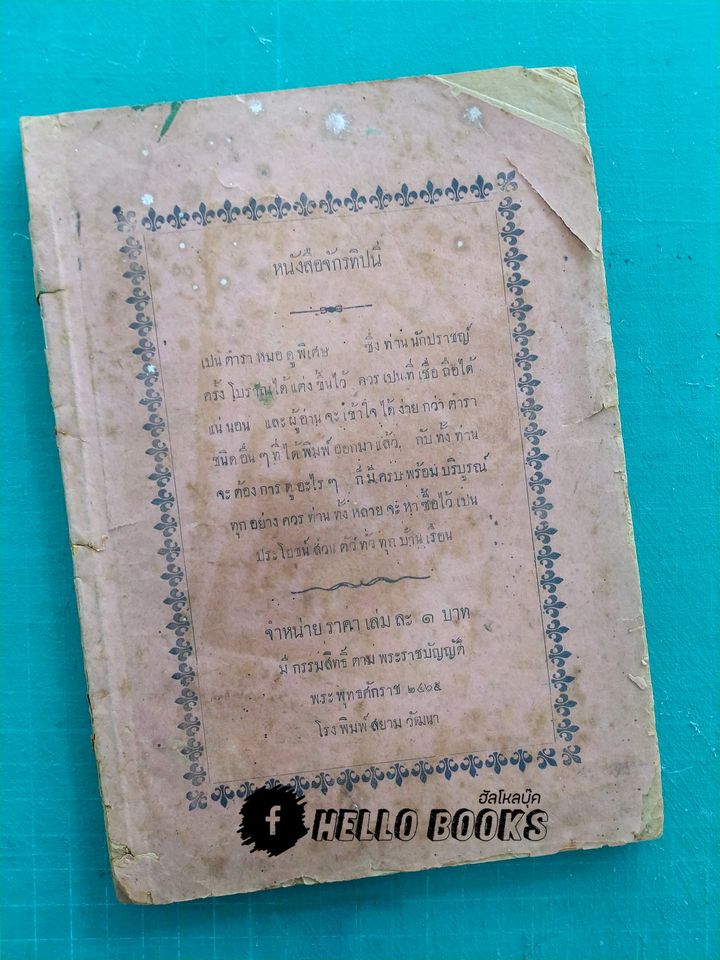 หนังสือจักรทิปนี
เปน ตำรา หมอ ดู พิเศษ ซึ่ง ท่าน นักปราชญ์
ครั้ง โบราณ ได้ แต่ง ขึ้นไว้ ควร เปน ที่ เชื่อ ถือ ได้
แน่ นอน และ ผู้ อ่าน จะ เข้าใจ ได้ ง่าย กว่า ตำรา
ชนิด อื่น ๆ ที่ ได้ พิมพ์ ออกมา แล้ว, กับ ทั้ง ท่าน
จะ ต้อง การ ดู อะไร ๆ ก็ มี ครบ พร้อม บริบูรณ์
ทุก อย่าง ควร ท่าน ทั้ง หลาย จะ หา ซื้อ ไว้ เปน
ประโยชน์ ส่วน ตัว ทั่ว ทุก บ้าน เรือน
จำหน่าย ราคา เล่ม ละ ๑ บาท
มี กรรมสิทธิ์ ตาม พระราชบัญญัติ
พระ พุทธศักราช ๒๔๖๕
โรง พิมพ์ สยาม วัฒนา
ฮัลโหลบุ๊ค
f HELLO BOOKS